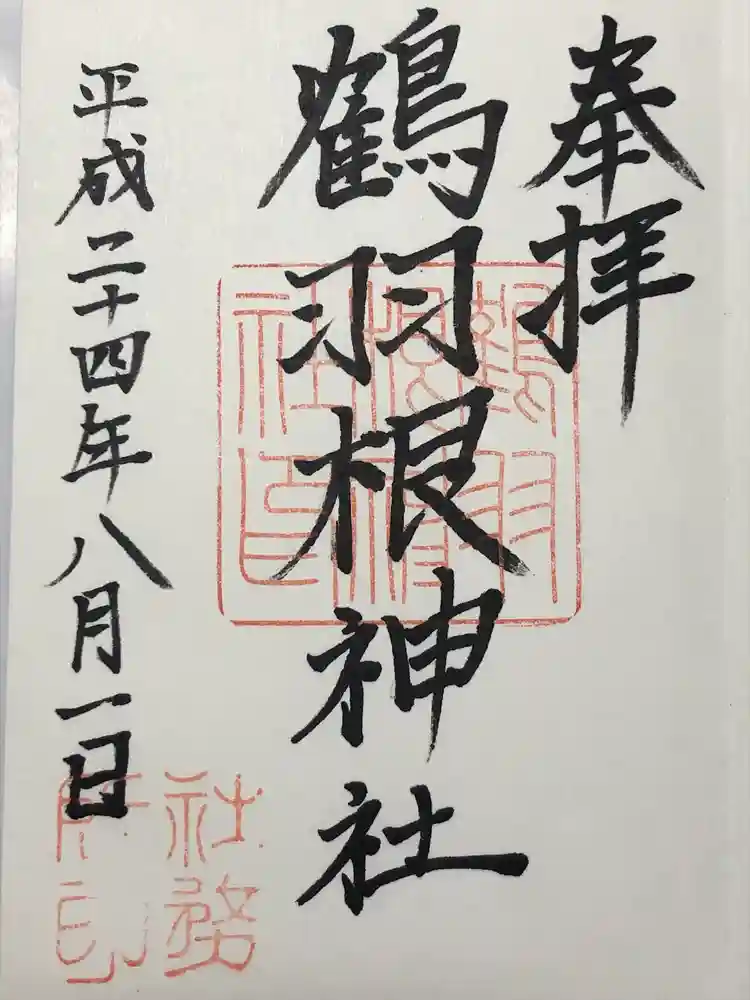 奉拝
鶴羽根神社
平成二十四年八月一日
社務所印